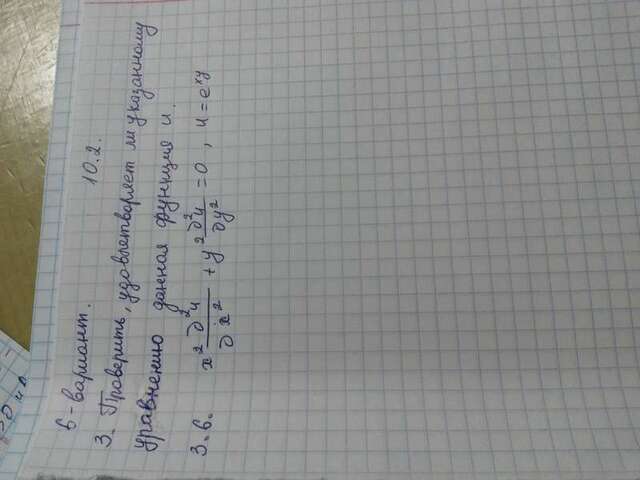 6-вариант. 10.2.
3. Проверить, удовлетворяет ли указанному
уравнению данная функция u.
3.6. x² ∂²u/∂x² + y² ∂²u/∂y² = 0, u = e^xy